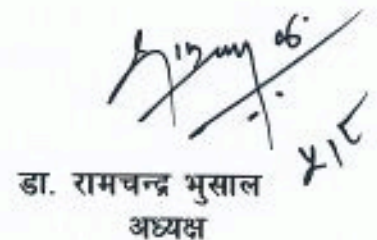 ५।८
डा. रामचन्द्र भुसाल
अध्यक्ष